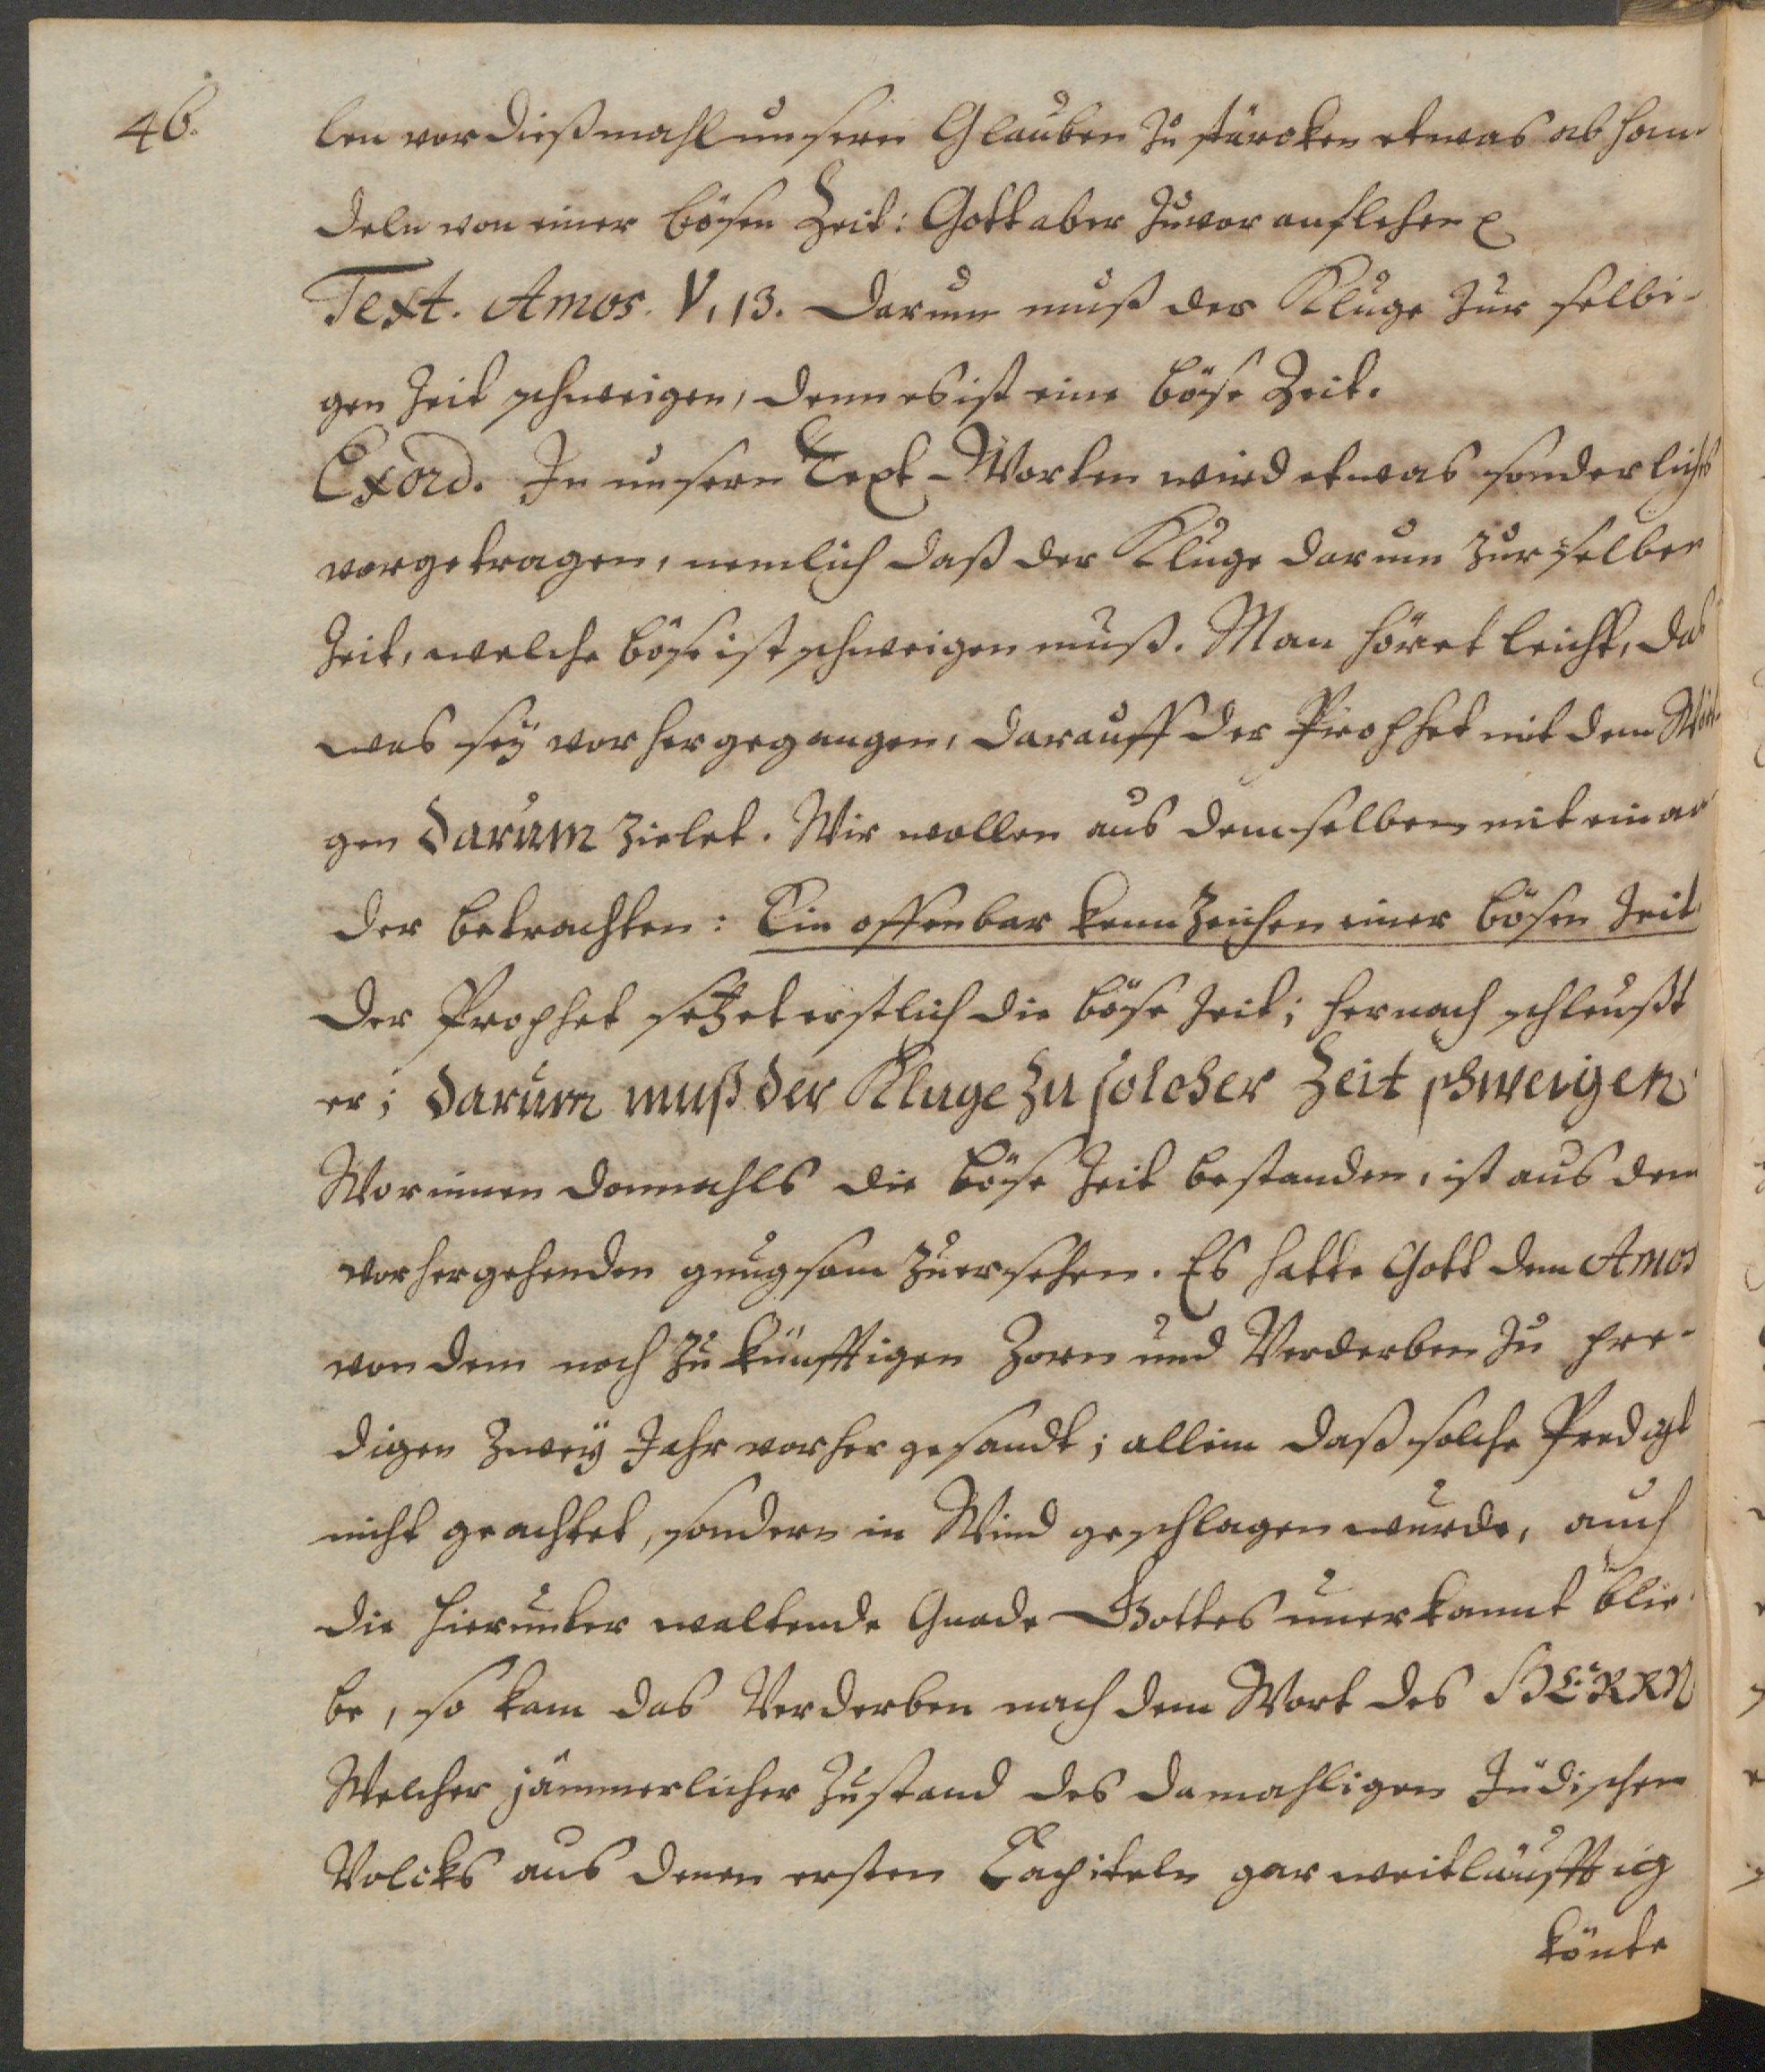 46.
len vor dießmahl unsern Glauben zu stärcken etwas abhan
deln von einer bösen Zeit: Gott aber zuvor anflehen
Text. Amos. V, 13. Darum muß der Kluge zur selbi-
gen Zeit schweigen, denn es ist eine böse Zeit.
Exord. In unsern Text-Worten wird etwas sonderlichs
vorgetragen, nemlich daß der Kluge darum zur selben
Zeit, welche böse ist schweigen muß. Man höret leicht, das
was sey vorhergegangen, darauff der Prophet mit dem
gen darum zielet. Wir wollen aus demselben mit einan
der betrachten: Ein offenbar kennzeichen einer bösen Zeit
Der Prophet setzet erstlich die böse Zeit; hernach schleußt
er; darum muß der Kluge zu solcher Zeit schweigen
Worinnen damahls die böse Zeit bestanden, ist aus dem
vorhergehenden gnugsam zu ersehen. Es hatte Gott dem Amos
von dem noch zukünfftigen Zorn und Verderben zu pre-
digen zwey Jahr vorher gesandt; allein daß solche Predigt
nicht geachtet, sondern in Wind geschlagen wurde, auch
die hierunter waltende Gnade Gottes unerkannt blie-
be, so kam das Verderben nach dem Wort des HERRN
Welcher jämmerlicher Zustand des damahligen Jüdischen
Volcks aus denen ersten Capiteln gar weitläufftig
könte